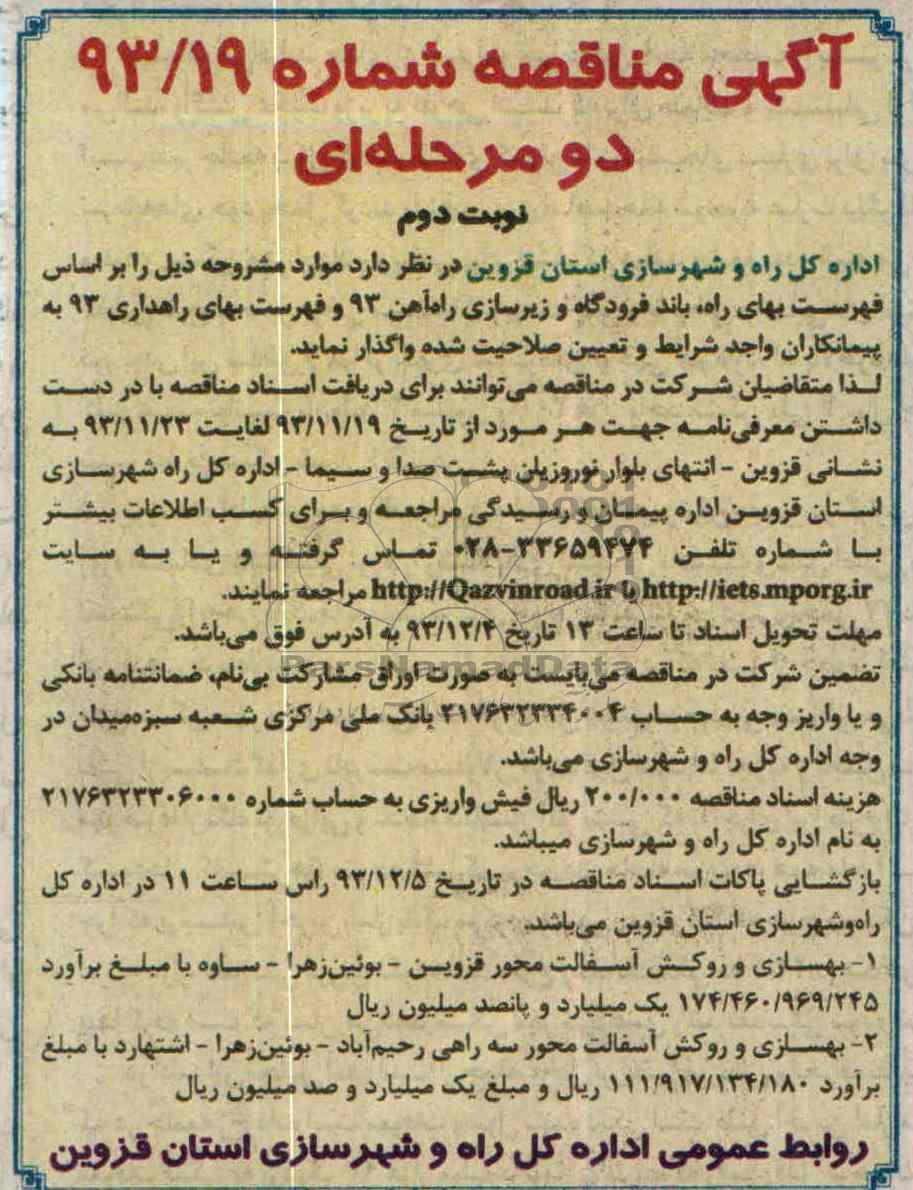 آگهی مناقصه شماره ۹۳/۱۹
دو مرحله‌ای
نوبت دوم
اداره کل راه و شهرسازی استان قزوین در نظر دارد موارد مشروحه ذیل را بر اساس
فهرست بهای راه، باند فرودگاه و زیرسازی راه‌آهن ۹۳ و فهرست بهای راهداری ۹۳ به
پیمانکاران واجد شرایط و تعیین صلاحیت شده واگذار نماید.
لذا متقاضیان شرکت در مناقصه می‌توانند برای دریافت اسناد مناقصه با در دست
داشتن معرفی‌نامه جهت هر مورد از تاریخ ۹۳/۱۱/۱۹ لغایت ۹۳/۱۱/۲۳ به
نشانی قزوین - انتهای بلوار نوروزیان پشت صدا و سیما - اداره کل راه شهرسازی
استان قزوین اداره پیمان و رسیدگی مراجعه و برای کسب اطلاعات بیشتر
با شماره تلفن ۳۳۶۵۹۴۷۴-۰۲۸ تماس گرفته و یا به سایت
http://iets.mporg.ir یا http://Qazvinroad.ir مراجعه نمایند.
مهلت تحویل اسناد تا ساعت ۱۳ تاریخ ۹۳/۱۲/۴ به آدرس فوق می‌باشد.
ParsNamadData
تضمین شرکت در مناقصه می‌بایست به صورت اوراق مشارکت بی‌نام، ضمانتنامه بانکی
و یا واریز وجه به حساب ۲۱۷۶۳۲۳۳۴۰۰۴ بانک ملی مرکزی شعبه سبزه‌میدان در
وجه اداره کل راه و شهرسازی می‌باشد.
هزینه اسناد مناقصه ۲۰۰/۰۰۰ ریال فیش واریزی به حساب شماره ۲۱۷۶۳۲۳۳۰۶۰۰۰
به نام اداره کل راه و شهرسازی میباشد.
بازگشایی پاکات اسناد مناقصه در تاریخ ۹۳/۱۲/۵ راس ساعت ۱۱ در اداره کل
راه‌وشهرسازی استان قزوین می‌باشد.
۱- بهسازی و روکش آسفالت محور قزوین - بوئین‌زهرا - ساوه با مبلغ برآورد
۱۷۴/۴۶۰/۹۶۹/۲۴۵ یک میلیارد و پانصد میلیون ریال
۲- بهسازی و روکش آسفالت محور سه راهی رحیم‌آباد - بوئین‌زهرا - اشتهارد با مبلغ
برآورد ۱۱۱/۹۱۷/۱۳۴/۱۸۰ ریال و مبلغ یک میلیارد و صد میلیون ریال
روابط عمومی اداره کل راه و شهرسازی استان قزوین